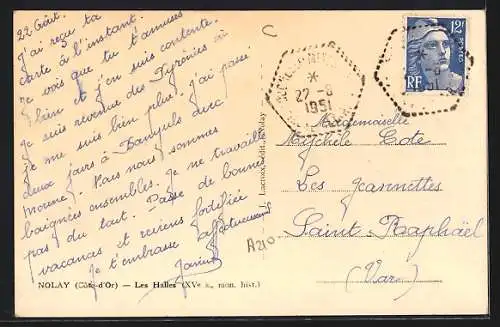 22 Août.
J'ai reçu ta
carte à l'instant.
Je vois que tu t'amuses
bien et j'en suis contente.
Je suis revenue des Pyrénées où
je me suis bien plu. J'ai passé
deux jours à Banyuls avec
Nous nous sommes
baignées ensembles. Je ne travaille
pas du tout. Passe de bonnes
vacances et reviens fortifiée
Je t'embrasse affectueusement
NOLAY (Côte-d'Or) — Les Halles (XVe s., mon. hist.)
C
J. Lacroix, édit., Nolay
A210
*
22-8
1951
12F
POSTES
RF
Mademoiselle
Mychèle Cote
Les Jeannettes
Saint-Raphaël
(Var)